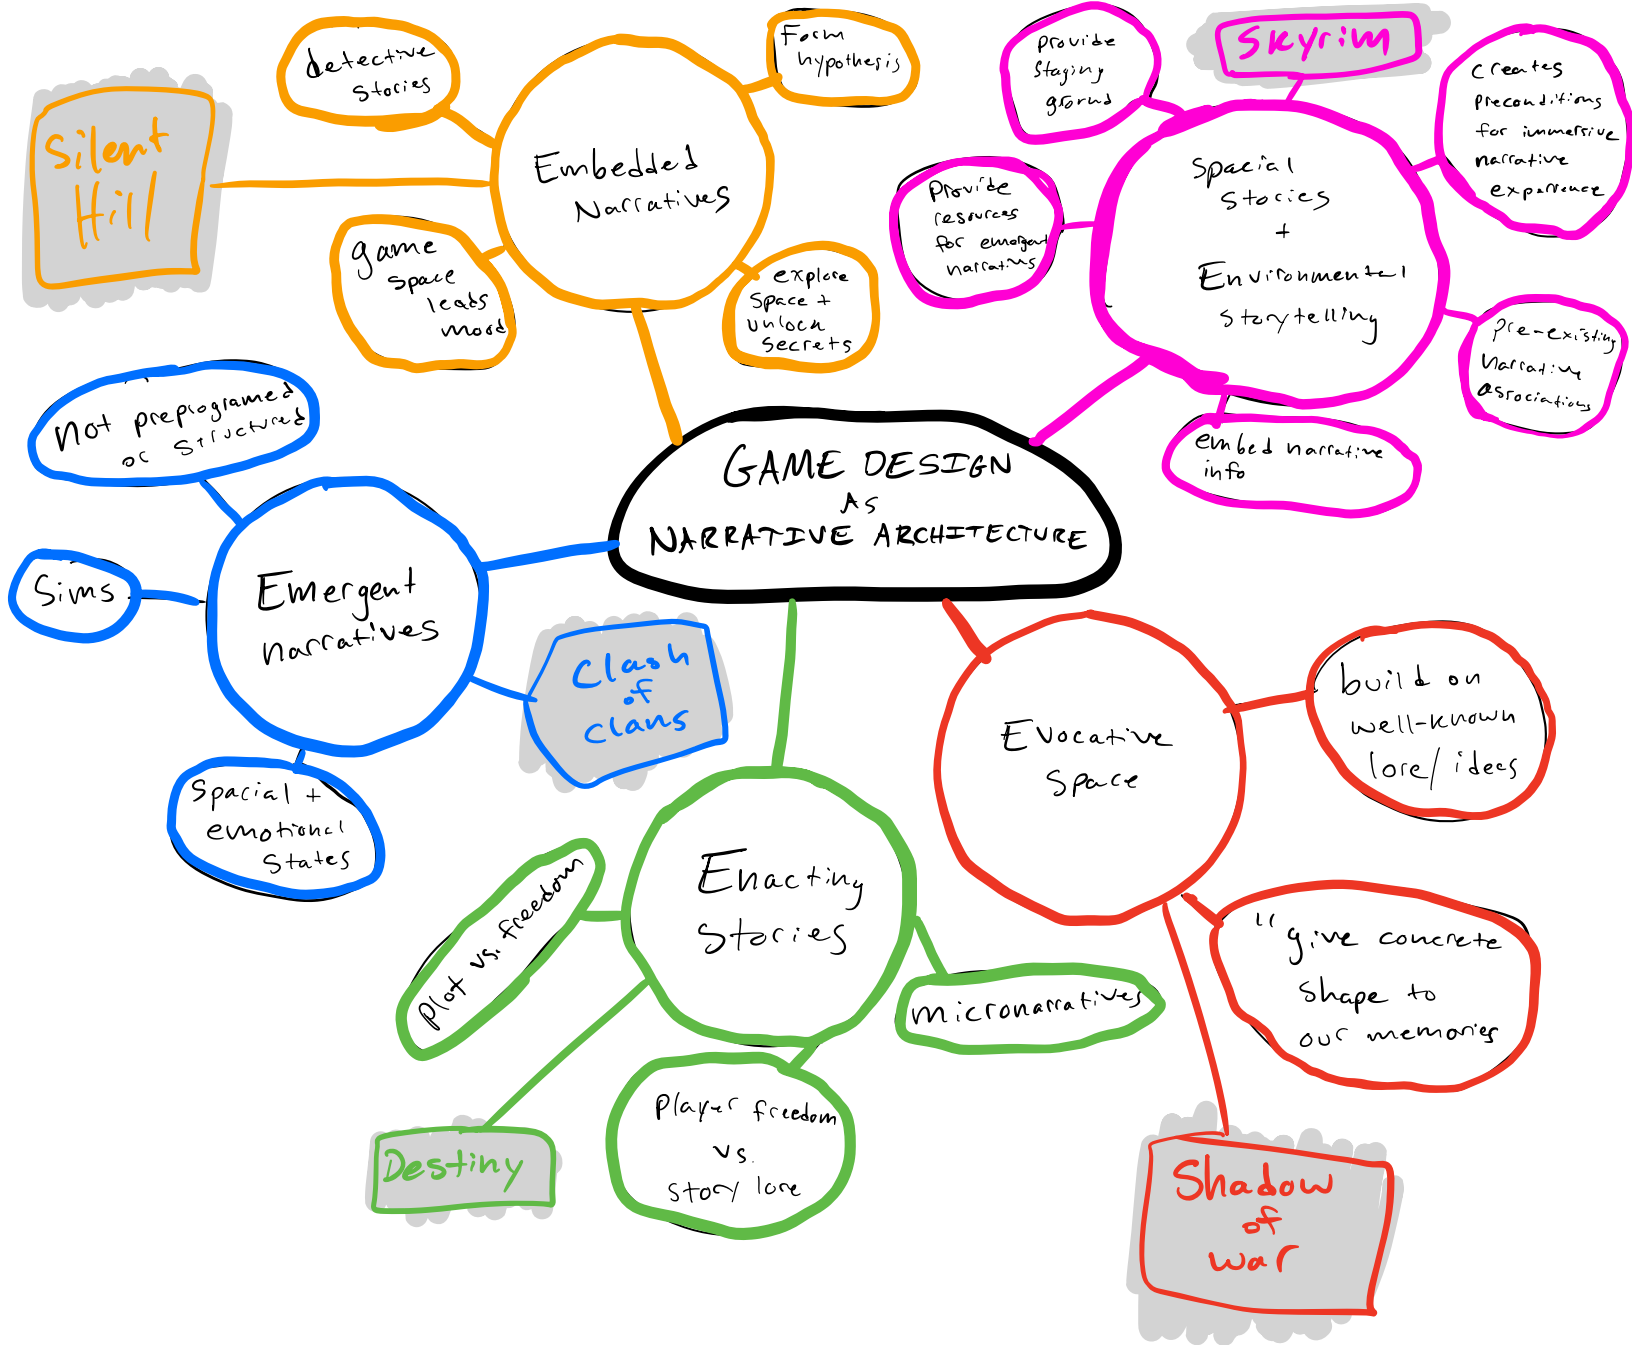 GAME DESIGN
AS
NARRATIVE ARCHITECTURE
Embedded
Narratives
detective
stories
Form
hypothesis
Silent
Hill
game
space
leads
mood
explore
space +
unlock
secrets
Spacial
Stories
+
Environmental
storytelling
Provide
staging
ground
Skyrim
creates
preconditions
for immersive
narrative
experience
Provide
resources
for emergent
narratives
pre-existing
narrative
associations
embed narrative
info
Emergent
narratives
Not preprogramed
or structured
Sims
Spacial +
emotional
States
Clash
of
Clans
Enacting
Stories
Plot vs. freedom
Destiny
Player freedom
vs.
story lore
micronarratives
Evocative
Space
build on
well-known
lore/ideas
"give concrete
shape to
our memories
Shadow
of
war